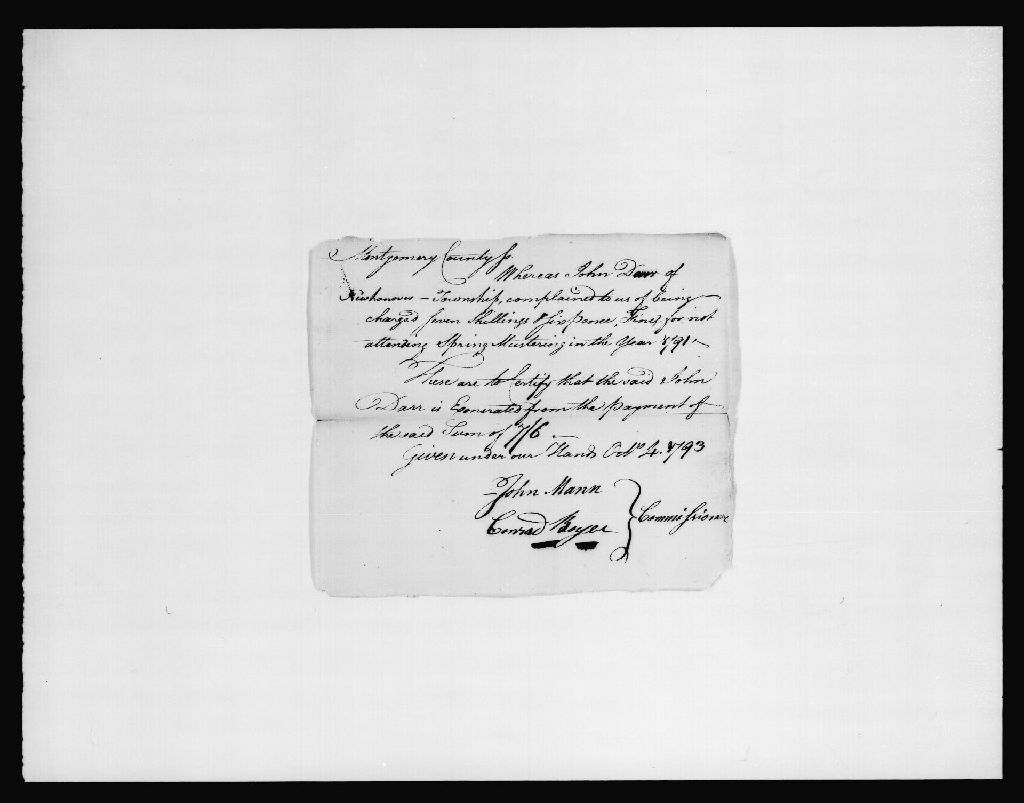 Montgomery County Ss.
Whereas John Darr of
Newhanover - Township, complained to us of being
charged Seven Shillings & Sixpence, Fines for not
attending Spring Mustering in the Year 1791 -
These are to Certify that the said John
Darr is Exonerated from the payment of
the said Sum of 7/6
Given under our Hands Octbr 4. 1793
John Mann
Conrad Boyer } Commissioners